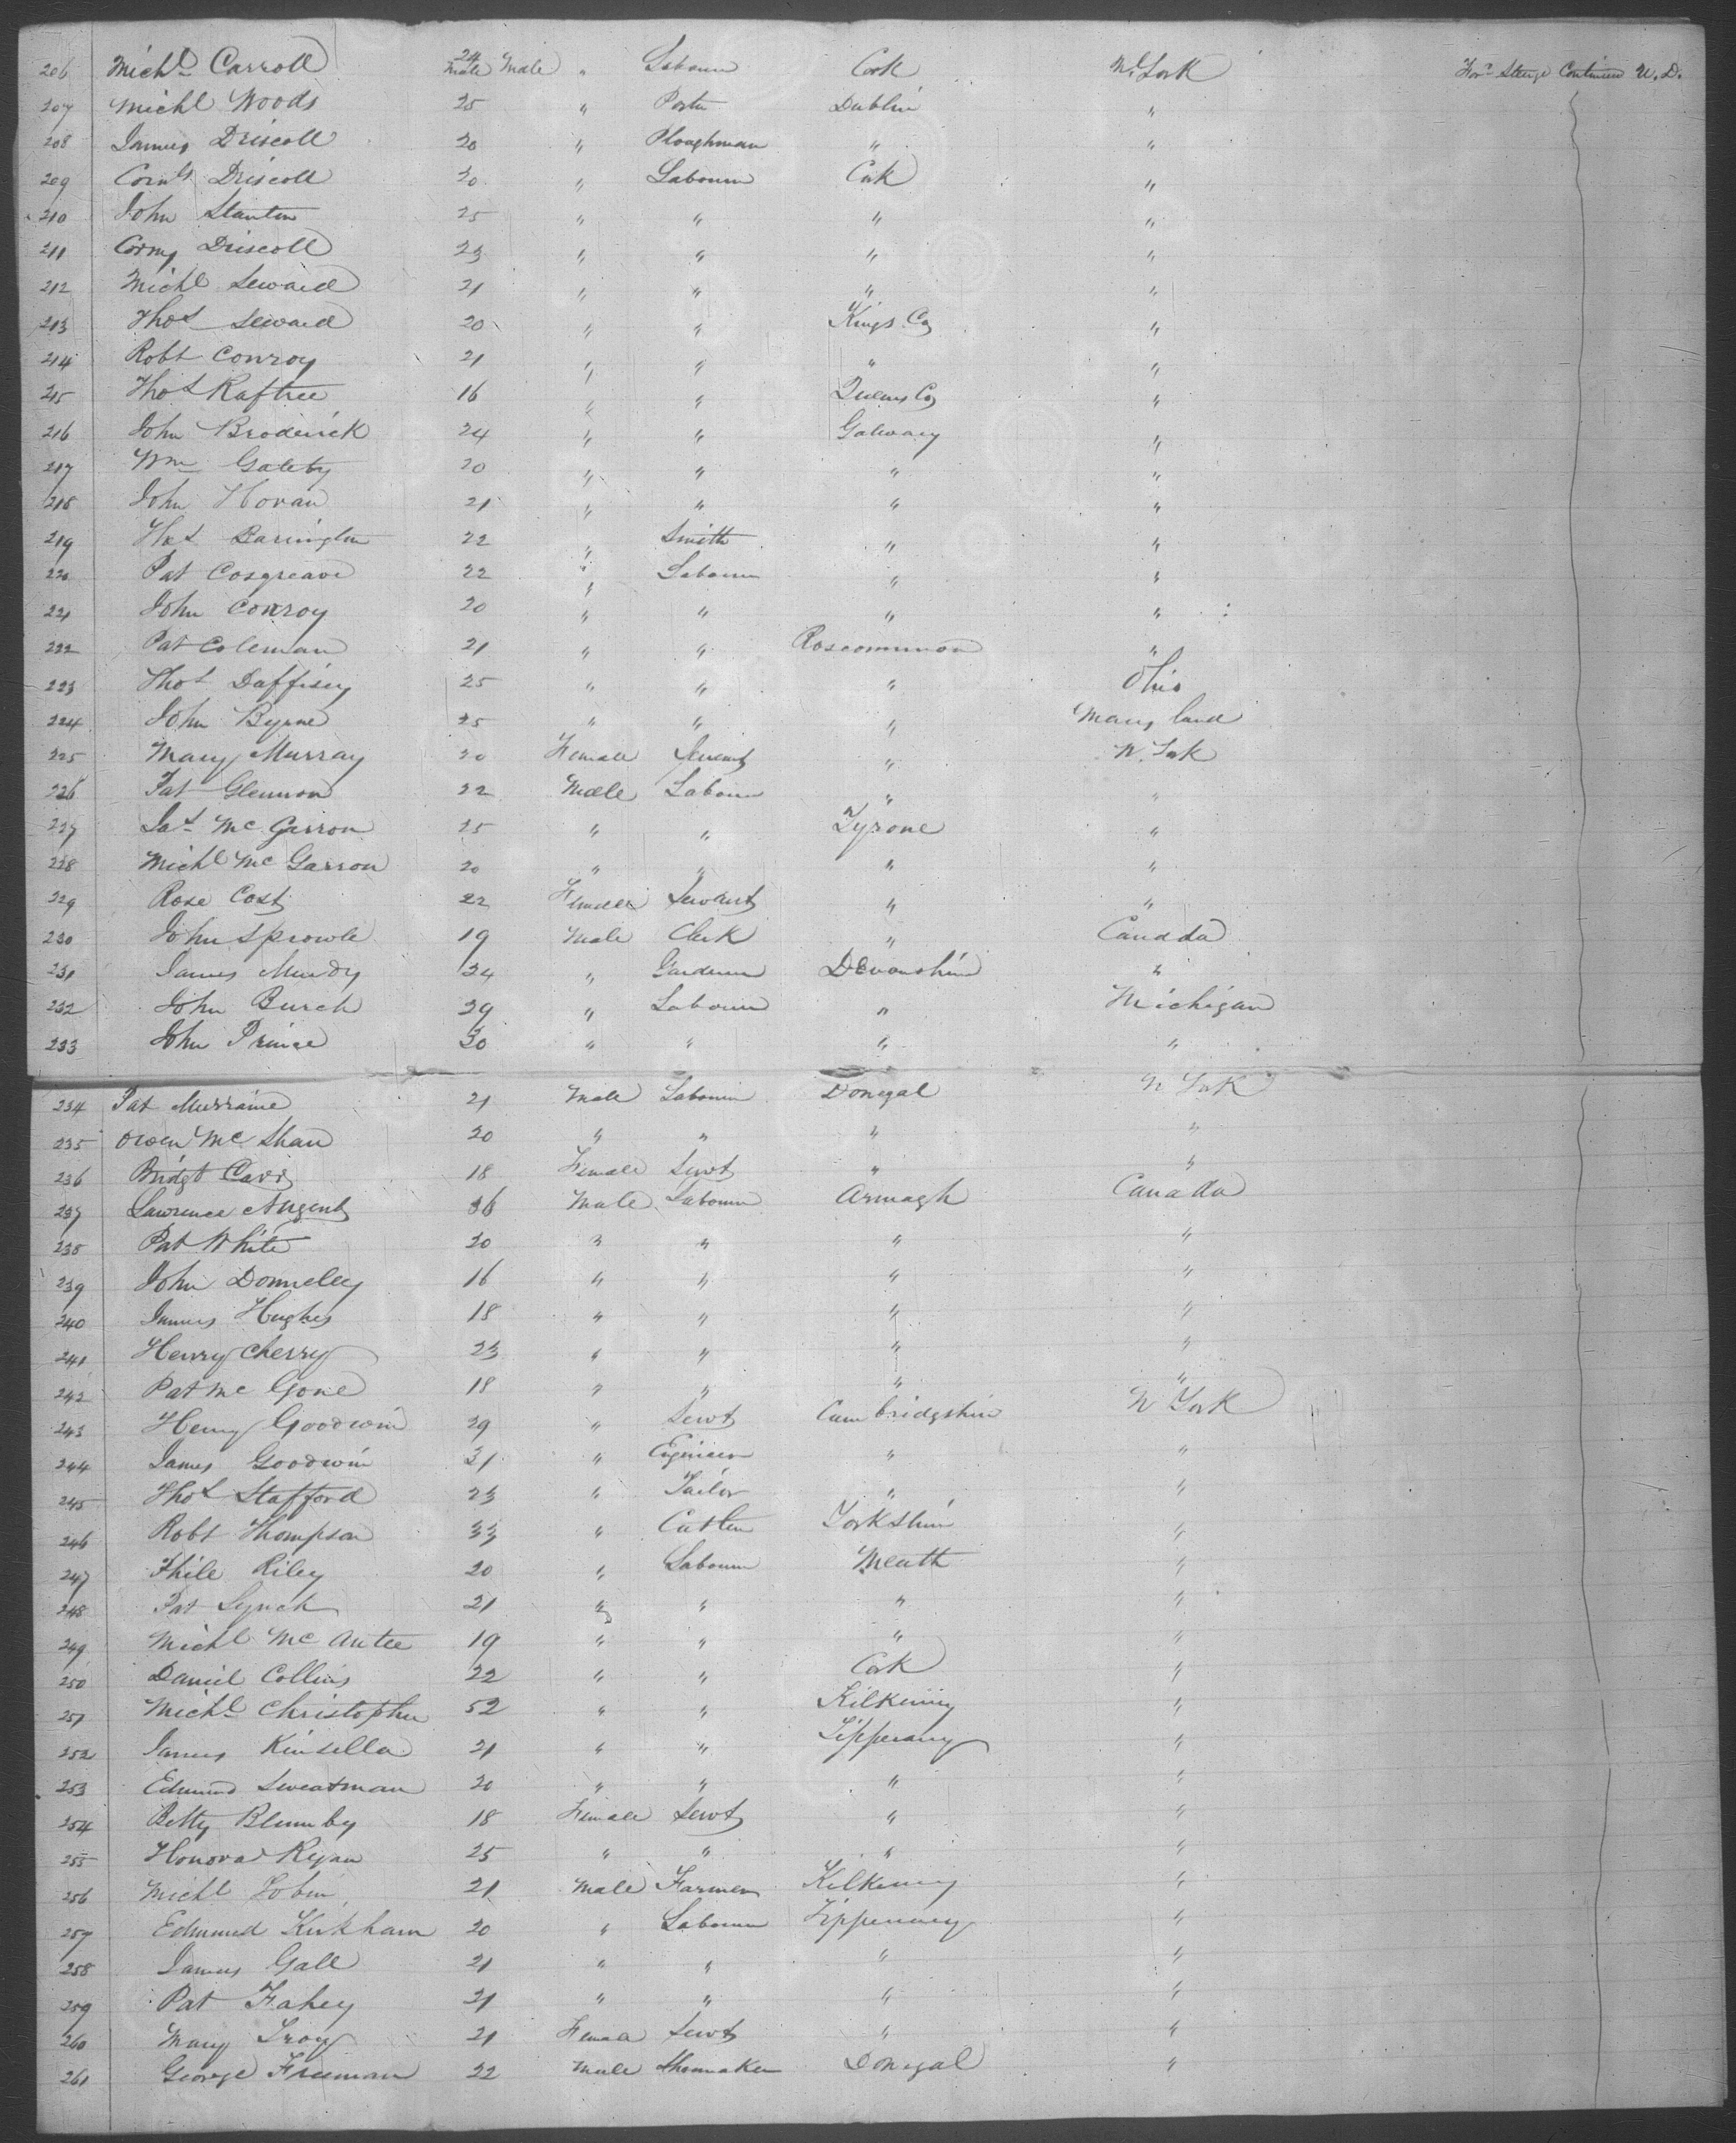 206 Michl Carroll 24 Male Male " Labourer Cork N. York Ford Steerage Continued U.D.
207 Michl Woods 25 " Porter Dublin "
208 James Driscoll 20 " Ploughman " "
209 Cornls Driscoll 20 " Labourer Cork "
210 John Stanton 25 " " " "
211 Corny Driscoll 23 " " " "
212 Michl Seward 21 " " " "
213 Thos Seward 20 " " Kings Co "
214 Robt Conroy 21 " " " "
215 Thos Raftree 16 " " Queens Co "
216 John Broderick 24 " " Galway "
217 Wm Gateby 20 " " " "
218 John Horan 21 " " " "
219 Thos Barrington 22 " Smith " "
220 Pat Cosgreave 22 " Labourer " "
221 John Conroy 20 " " " "
222 Pat Coleman 21 " " Roscommon "
223 Thos Daffisey 25 " " " Ohio
224 John Byrne 25 " " " Mary land
225 Mary Murray 20 Female Servant " N. York
226 Pat Glennon 22 Male Labourer " "
227 Jas McGarron 25 " " Tyrone "
228 Michl McGarron 20 " " " "
229 Rose Cost 22 Female Servant " "
230 John Sprowle 19 Male Clerk " Canada
231 James Mundy 24 " Gardener Devonshire "
232 John Burch 29 " Labourer " Michigan
233 John Prince 30 " " " "
234 Pat Murraine 21 Male Labourer Donegal N York
235 Owen McShan 20 " " " "
236 Bridgt Carr 18 Female Servt " "
237 Lawrence Nugent 36 Male Labourer Armagh Canada
238 Pat White 20 " " " "
239 John Donneley 16 " " " "
240 James Hughes 18 " " " "
241 Henry Cherry 23 " " " "
242 Pat McGone 18 " " " "
243 Henry Goodwin 29 " Servt Cambridgshire N York
244 James Goodwin 31 " Engineer " "
245 Thos Stafford 23 " Tailor " "
246 Robt Thompson 33 " Cutler Yorkshire "
247 Phile Riley 20 " Labourer Meath "
248 Pat Lynch 21 " " " "
249 Michl McAntee 19 " " " "
250 Daniel Collins 22 " " Cork "
251 Michl Christopher 52 " " Kilkenny "
252 James Kinsella 21 " " Tipperary "
253 Edmund Sweatman 20 " " " "
254 Betty Blumby 18 Female Servt " "
255 Honora Ryan 25 " " " "
256 Michl Tobin 21 Male Farmer Kilkenny "
257 Edmund Kirkham 20 " Labourer Tipperary "
258 James Gall 21 " " " "
259 Pat Fahey 21 " " " "
260 Mary Troy 21 Femaa Servt " "
261 George Freeman 22 Male Shomaker Donegal "